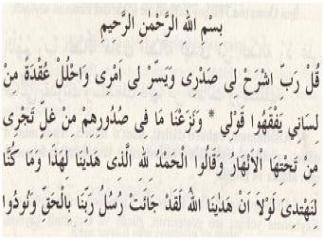 بِسْمِ اللهِ الرَّحْمٰنِ الرَّحِيْمِ
قُلْ رَبِّ اشْرَحْ لِى صَدْرِى وَيَسِّرْ لِى اَمْرِى وَاحْلُلْ عُقْدَةً مِنْ
لِسَانِي يَفْقَهُوا قَوْلِي * وَنَزَعْنَا مَا فِى صُدُورِهِمْ مِنْ غِلٍّ تَجْرِى
مِنْ تَحْتِهَا الْاَنْهَارُ وَقَالُوا الْحَمْدُ لِلّٰهِ الَّذِى هَدٰينَا لِهٰذَا وَمَا كُنَّا
لِنَهْتَدِىَ لَوْلَا اَنْ هَدٰينَا اللهُ لَقَدْ جَائَتْ رُسُلُ رَبِّنَا بِالْحَقِّ وَنُودُوا